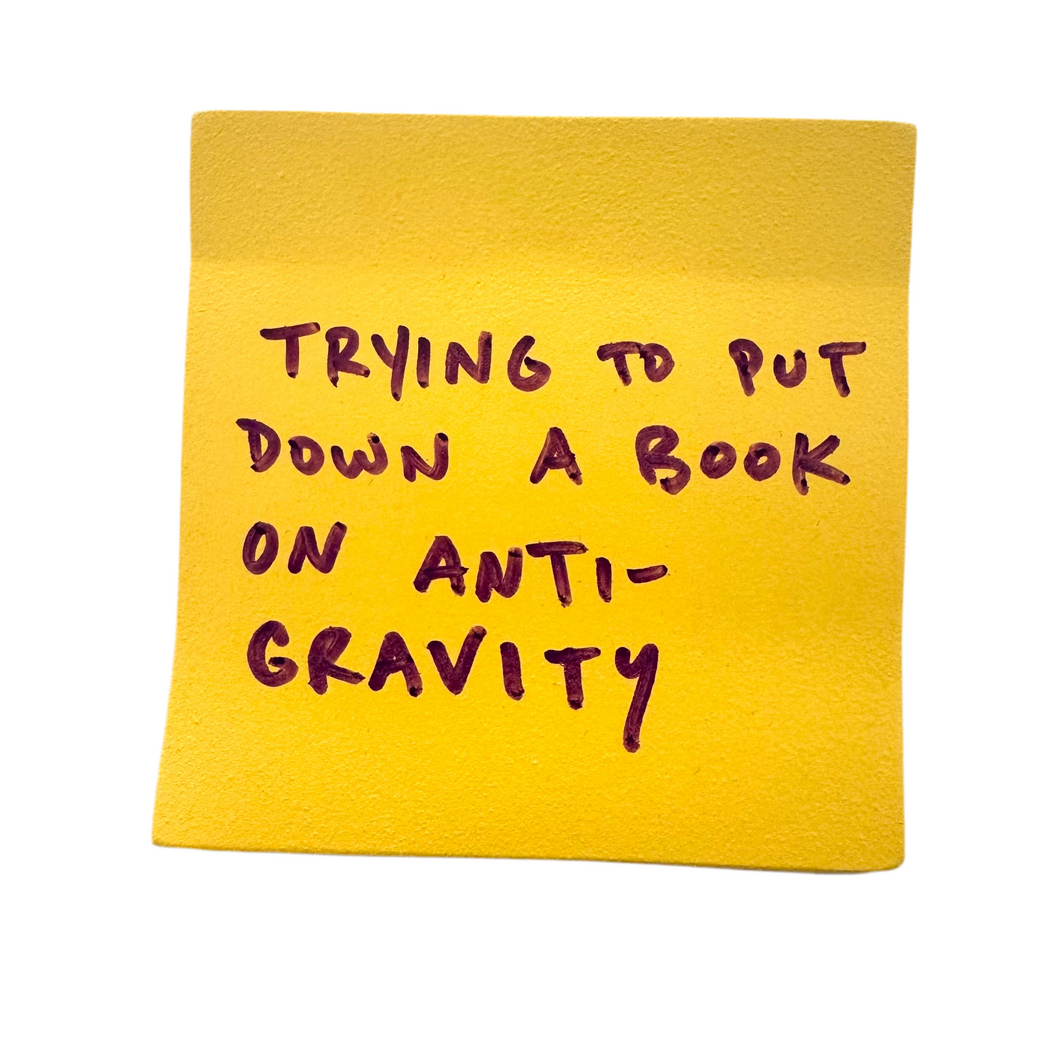 TRYING TO PUT
DOWN A BOOK
ON ANTI-
GRAVITY